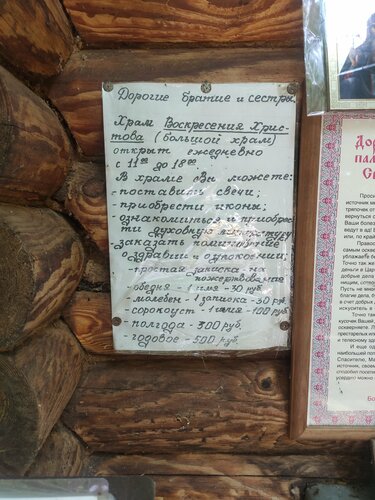 Дорогие братие и сестры
Храм Воскресения Хрис-
това (большой храм)
открыт ежедневно
с 11⁰⁰ до 18⁰⁰
В храме Вы можете:
- поставить свечи;
- приобрести иконы;
- ознакомиться и приобрес-
ти духовную литературу
- заказать поминовение
о здравии и упокоении;
- простая записка на
пожертвование
- обедня - 1 имя - 30 руб.
- молебен - 1 записка - 30 руб.
- сорокоуст - 1 имя - 100 руб.
- полгода - 300 руб.
- годовое - 500 руб.
Дор
пал
Св
Проси
источник м
тряпочек о
вернуться с
Ваши болез
ведут в ад!
или, по край
Правос
самым оскве
ублажайте б
Точно так ж
деньги в Цар
добрые дела
нищим, сотво
Пусть не мно
благие дела, б
счет добрых д
искуситель в
Точно так
кусочек Вашей
оскверняете. Л
престарелых ил
и телесному здра
И еще од
наибольшей пол
Спасителю, Ма
источник, своем
сподобил посети
усердно можно
Бо